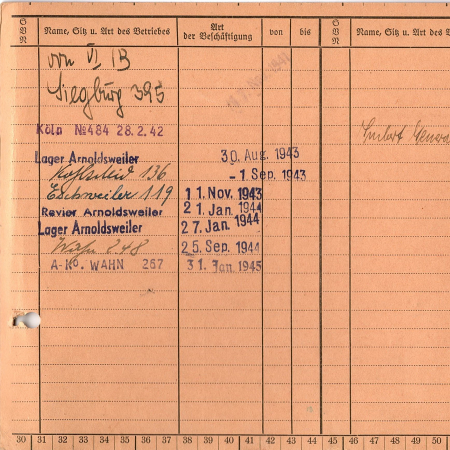 SBN Name, Sitz u. Art des Betriebes Art der Beschäftigung von bis SBN Name, Sitz u. Art des B
von VI B
Siegburg 395
Köln №484 28.2.42
Lager Arnoldsweiler 30. Aug. 1943
Kohlscheid 136 - 1. Sep. 1943
Eschweiler 119 11. Nov. 1943
Revier Arnoldsweiler 21. Jan. 1944
Lager Arnoldsweiler 27. Jan. 1944
Wahn 248 25. Sep. 1944
A-Ko. WAHN 267 31. Jan. 1945
30 31 32 33 34 35 36 37 38 39 40 41 42 43 44 45 46 47 48 49 50